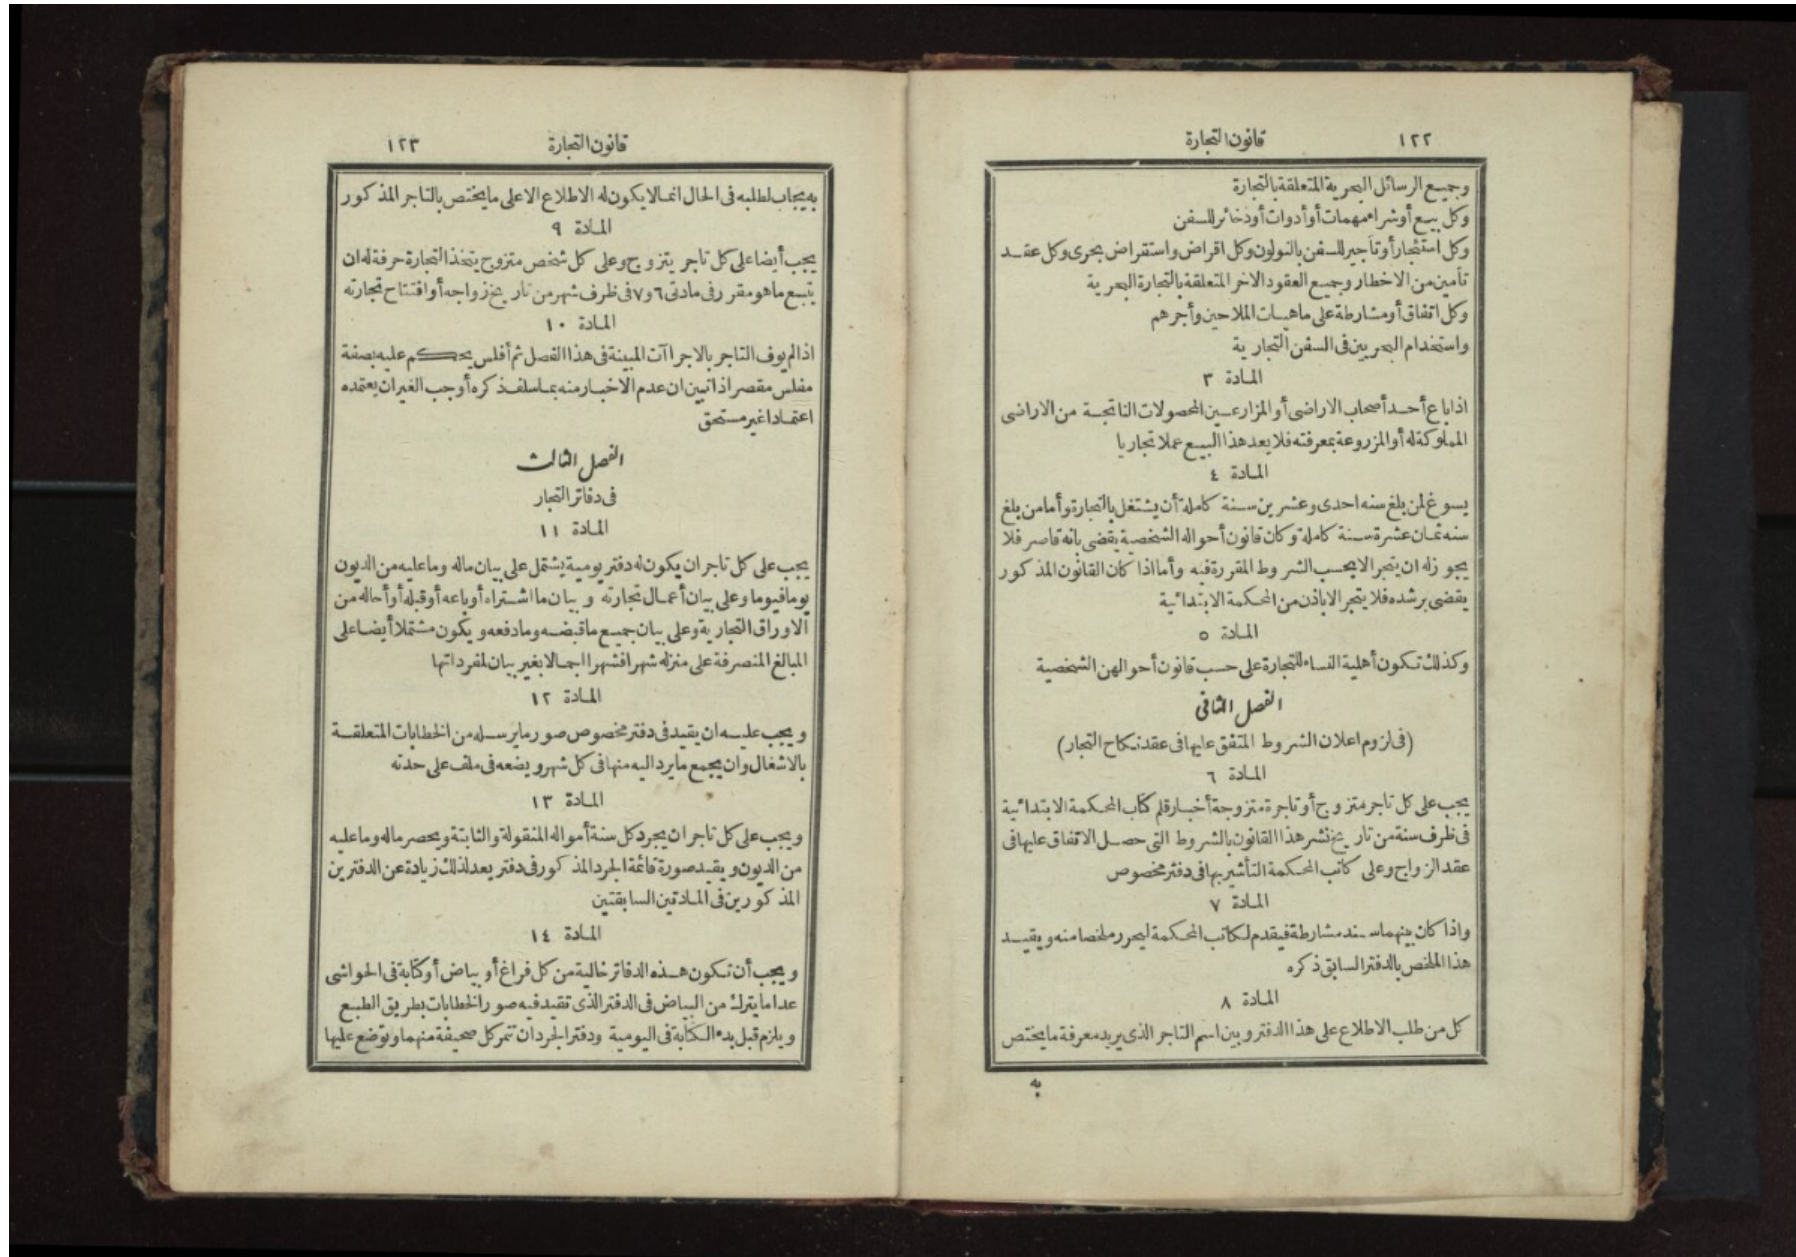 ١٢٢
قانون التجارة
وجميع الرسائل البحرية المتعلقة بالتجارة
وكل بيع أو شراء مهمات أو أدوات أو ذخائر للسفن
وكل استئجار أو تأجير للسفن بالنولون وكل اقراض واستقراض بحرى وكل عقد
تأمين من الاخطار وجميع العقود الاخر المتعلقة بالتجارة البحرية
وكل اتفاق أو مشارطة على ماهيات الملاحين وأجرهم
واستخدام البحريين فى السفن التجارية
المادة ٣
اذا باع أحد أصحاب الاراضى أو المزارعين المحصولات الناتجة من الاراضى
المملوكة له أو المزروعة بمعرفته فلا يعد هذا البيع عملا تجاريا
المادة ٤
يسوغ لمن بلغ سنه احدى وعشرين سنة كاملة أن يشتغل بالتجارة وأما من بلغ
سنه ثمان عشرة سنة كاملة وكان قانون أحواله الشخصية يقضى بانه قاصر فلا
يجوز له ان يتجر الا بحسب الشروط المقررة فيه وأما اذا كان القانون المذكور
يقضى برشده فلا يتجر الا باذن من المحكمة الابتدائية
المادة ٥
وكذلك تكون أهلية النساء للتجارة على حسب قانون أحوالهن الشخصية
الفصل الثانى
(فى لزوم اعلان الشروط المتفق عليها فى عقد نكاح التجار)
المادة ٦
يجب على كل تاجر متزوج أو تاجرة متزوجة أخبار قلم كتاب المحكمة الابتدائية
فى ظرف سنة من تاريخ نشر هذا القانون بالشروط التى حصل الاتفاق عليها فى
عقد الزواج وعلى كاتب المحكمة التأشير بها فى دفتر مخصوص
المادة ٧
واذا كان بينهما سند مشارطة فيقدم لكاتب المحكمة ليحرر ملخصا منه ويقيد
هذا الملخص بالدفتر السابق ذكره
المادة ٨
كل من طلب الاطلاع على هذا الدفتر وبين اسم التاجر الذى يريد معرفة ما يختص
به
قانون التجارة
١٢٣
به يجاب لطلبه فى الحال انما لا يكون له الاطلاع الا على ما يختص بالتاجر المذكور
المادة ٩
يجب أيضا على كل تاجر يتزوج وعلى كل شخص متزوج يتخذ التجارة حرفة له ان
يتبع ما هو مقرر فى مادتى ٦ و ٧ فى ظرف شهر من تاريخ زواجه أو افتتاح تجارته
المادة ١٠
اذا لم يوف التاجر بالاجراآت المبينة فى هذا الفصل ثم أفلس يحكم عليه بصفة
مفلس مقصر اذا تبين ان عدم الاخبار منه بما سلف ذكره أوجب الغير ان يعتمده
اعتمادا غير مستحق
الفصل الثالث
فى دفاتر التجار
المادة ١١
يجب على كل تاجر ان يكون له دفتر يومية يشتمل على بيان ماله وما عليه من الديون
يوما فيوما وعلى بيان أعمال تجارته وبيان ما اشتراه أو باعه أو قبله أو أحاله من
الاوراق التجارية وعلى بيان جميع ما قبضه وما دفعه ويكون مشتملا أيضا على
المبالغ المنصرفة على منزله شهرا فشهرا اجمالا بغير بيان لمفرداتها
المادة ١٢
ويجب عليه ان يقيد فى دفتر مخصوص صور ما يرسله من الخطابات المتعلقة
بالاشغال وان يجمع ما يرد اليه منها فى كل شهر ويضعه فى ملف على حدته
المادة ١٣
ويجب على كل تاجر ان يجرد كل سنة أمواله المنقولة والثابتة ويحصر ماله وما عليه
من الديون ويقيد صورة قائمة الجرد المذكور فى دفتر يعد لذلك زيادة عن الدفترين
المذكورين فى المادتين السابقتين
المادة ١٤
ويجب أن تكون هذه الدفاتر خالية من كل فراغ أو بياض أو كتابة فى الحواشى
عدا ما يترك من البياض فى الدفتر الذى تقيد فيه صور الخطابات بطريق الطبع
ويلزم قبل بدء الكتابة فى اليومية ودفتر الجرد ان تنمر كل صحيفة منهما وتوضع عليها